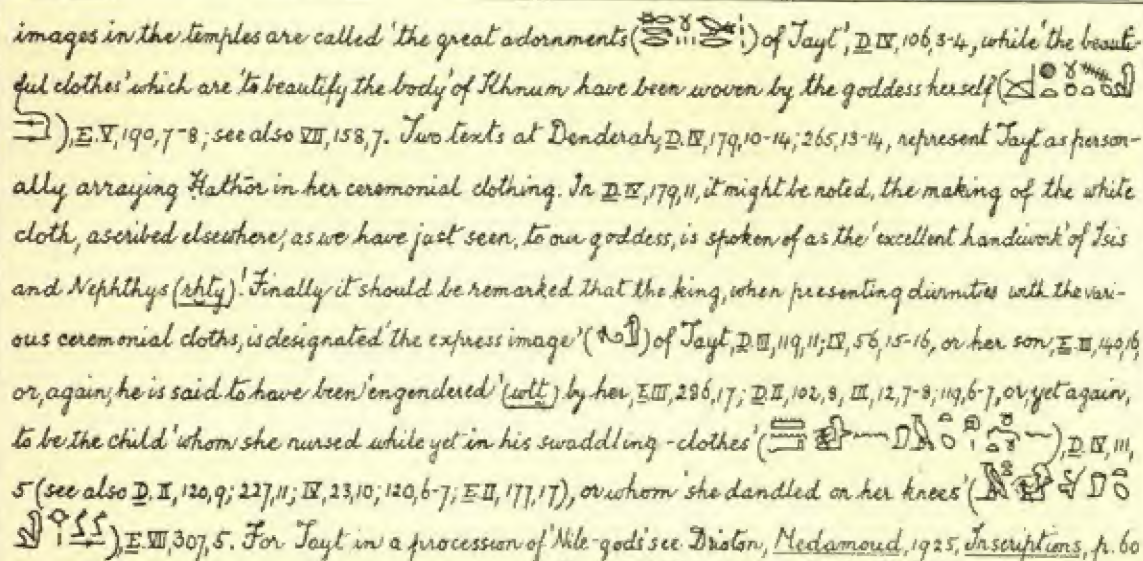 images in the temples are called 'the great adornments () of Tayt', D. IV, 106, 3-4, while 'the beauti-
ful clothes' which are 'to beautify the body' of Khnum have been woven by the goddess herself (
), E. V, 190, 7-8; see also VII, 158, 7. Two texts at Denderah, D. IV, 179, 10-14; 265, 13-14, represent Tayt as person-
ally arraying Hathōr in her ceremonial clothing. In D. IV, 179, 11, it might be noted, the making of the white
cloth, ascribed elsewhere, as we have just seen, to our goddess, is spoken of as the 'excellent handiwork' of Isis
and Nephthys (rhty)! Finally it should be remarked that the king, when presenting divinities with the vari-
ous ceremonial cloths, is designated 'the express image' () of Tayt, D. III, 119, 11; IV, 56, 15-16, or her son, E. II, 140, 16,
or, again, he is said to have been 'engendered' (wtt) by her, E. III, 286, 17; D. II, 102, 8, III, 12, 7-8; 119, 6-7, or, yet again,
to be the child 'whom she nursed while yet in his swaddling-clothes' (), D. IV, 111,
5 (see also D. II, 120, 9; 227, 11; IV, 23, 10; 120, 6-7; E. II, 177, 17), or whom 'she dandled on her knees' (
), E. VII, 307, 5. For Tayt in a procession of 'Nile-gods' see Drioton, Medamoud, 1925, Inscriptions, p. 60